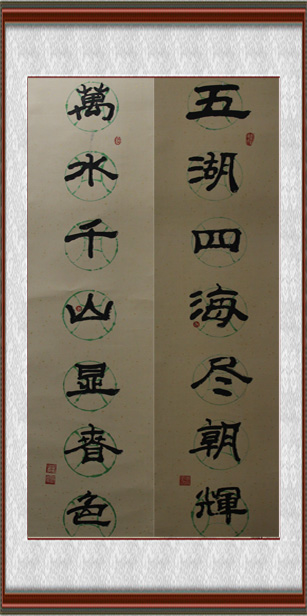 五湖四海尽朝輝
萬水千山显春色